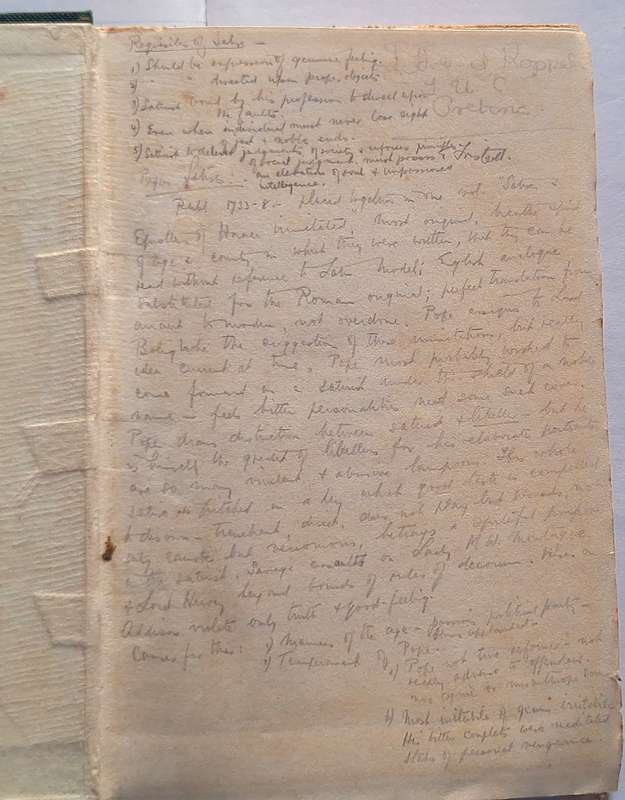 Requisites of Satire —
1) Should be expression of genuine feeling.
2) " " directed upon proper objects
3) Satirist bound by his profession to direct upon
the faults.
4) Even when individual must never lose sight
of great & noble ends.
5) Satirist to defend judgments of society & enforce principles
of social judgment. must possess
an elevation of soul & unpoisoned
intelligence.
T.U.C.
Pretoria
Pope's Satires:
Publ 1733-8 — placed together in one vol. "Satires &
Epistles of Horace imitated". Most original, breathe spirit
of age & country in which they were written, that they can be
read without reference to Latin model; English analogue
substituted for the Roman original; perfect translation from
ancient to modern, not overdone. Pope assigns to Lord
Bolingbroke the suggestion of these imitations, but really
idea current at time. Pope most probably wished to
come forward as a satirist under the shield of a noble
name — feels bitter personalities need some such cover.
Pope draws distinction between satirist & libeller — but he
is himself the greatest of libellers for his elaborate portraits
are so many virulent & abusive lampoons. This whole
satire is pitched in a key which good taste is compelled
to disown — trenchant, direct, does not play but wounds, not
only caustic but venomous, betrays a spiteful purpose
in the satirist. Savage assaults on Lady M. W. Montague
& Lord Hervey beyond bounds of rules of decorum. Lines on
Addison violate only truth & good-feeling.
Causes for this: 1) Manners of the age — passions political party-
2) Temperament of Pope.
1) Pope not true reformer — not
really adverse to offenders.
2) Most irritable of genus irritabile
His bitter couplets were meditated
stabs of personal vengeance